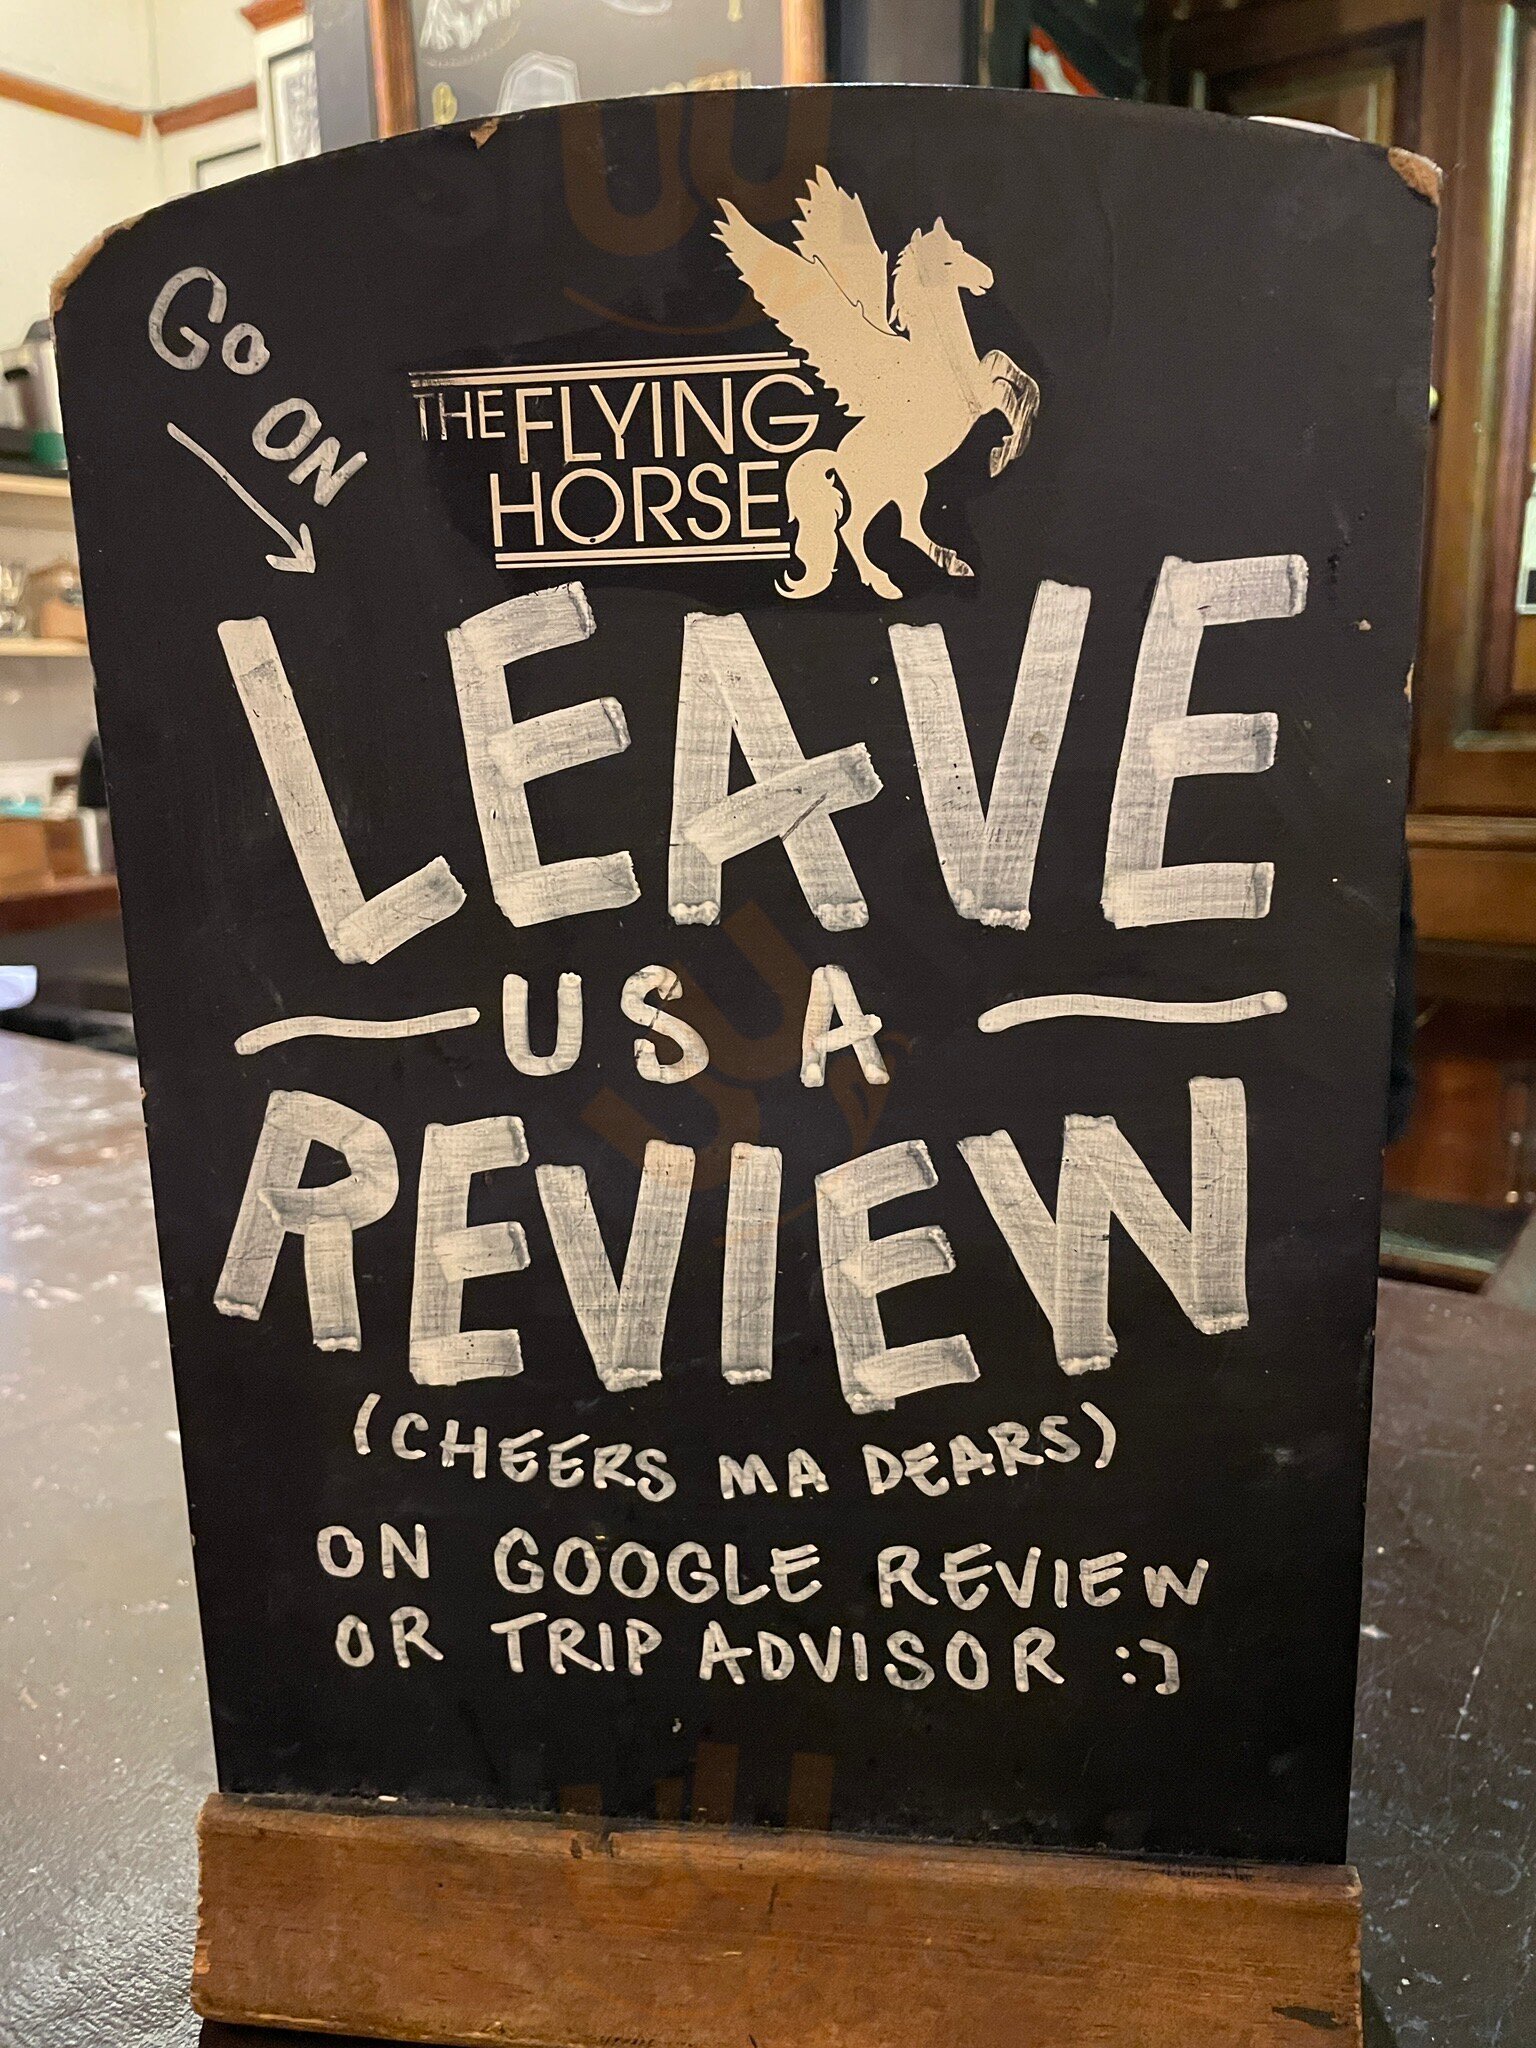 Go
ON
THE FLYING
HORSE
LEAVE
US A
REVIEW
(CHEERS MA DEARS)
ON GOOGLE REVIEW
OR TRIP ADVISOR :]